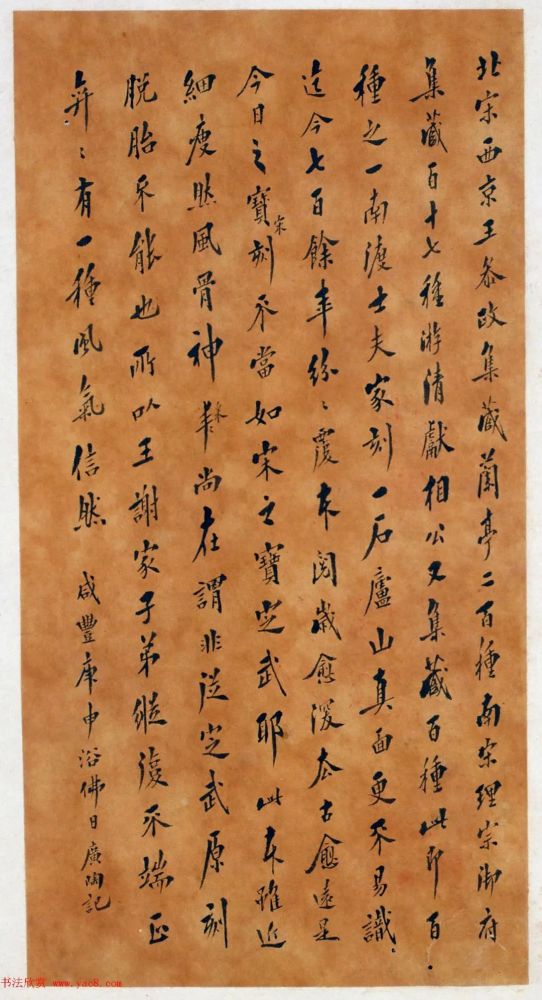 北宋西京王叅政集藏蘭亭二百種南宋理宗御府
集藏百十七種游清獻相公又集藏百種此即百
種之一南渡士夫家刻一石廬山真面更不易識
迄今七百餘年紛〻覆本閱歲愈深太古愈遠是
今日之寶宋刻不當如宋之寶定武耶此本雖近
細瘦然風骨神采尚在謂非從定武原刻
脫胎不能也所以王謝家子弟縱復不端正
弈〻有一種風氣信然
咸豐庚申浴佛日廣陶記
书法欣赏 www.yac8.com